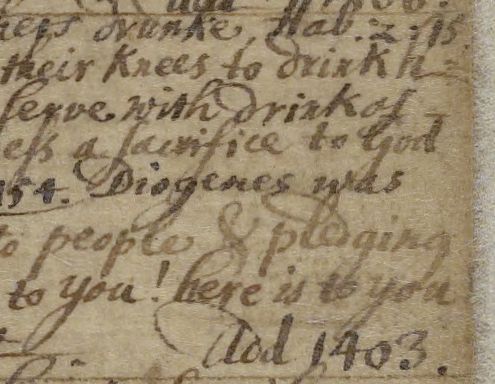 drunke, Hab. 2. 15.
their Knees to drink h
serve with drink of
ess a sacrifice to God
154. Diogenes was
to people & pledging
to you! here is to you
Add 1403.